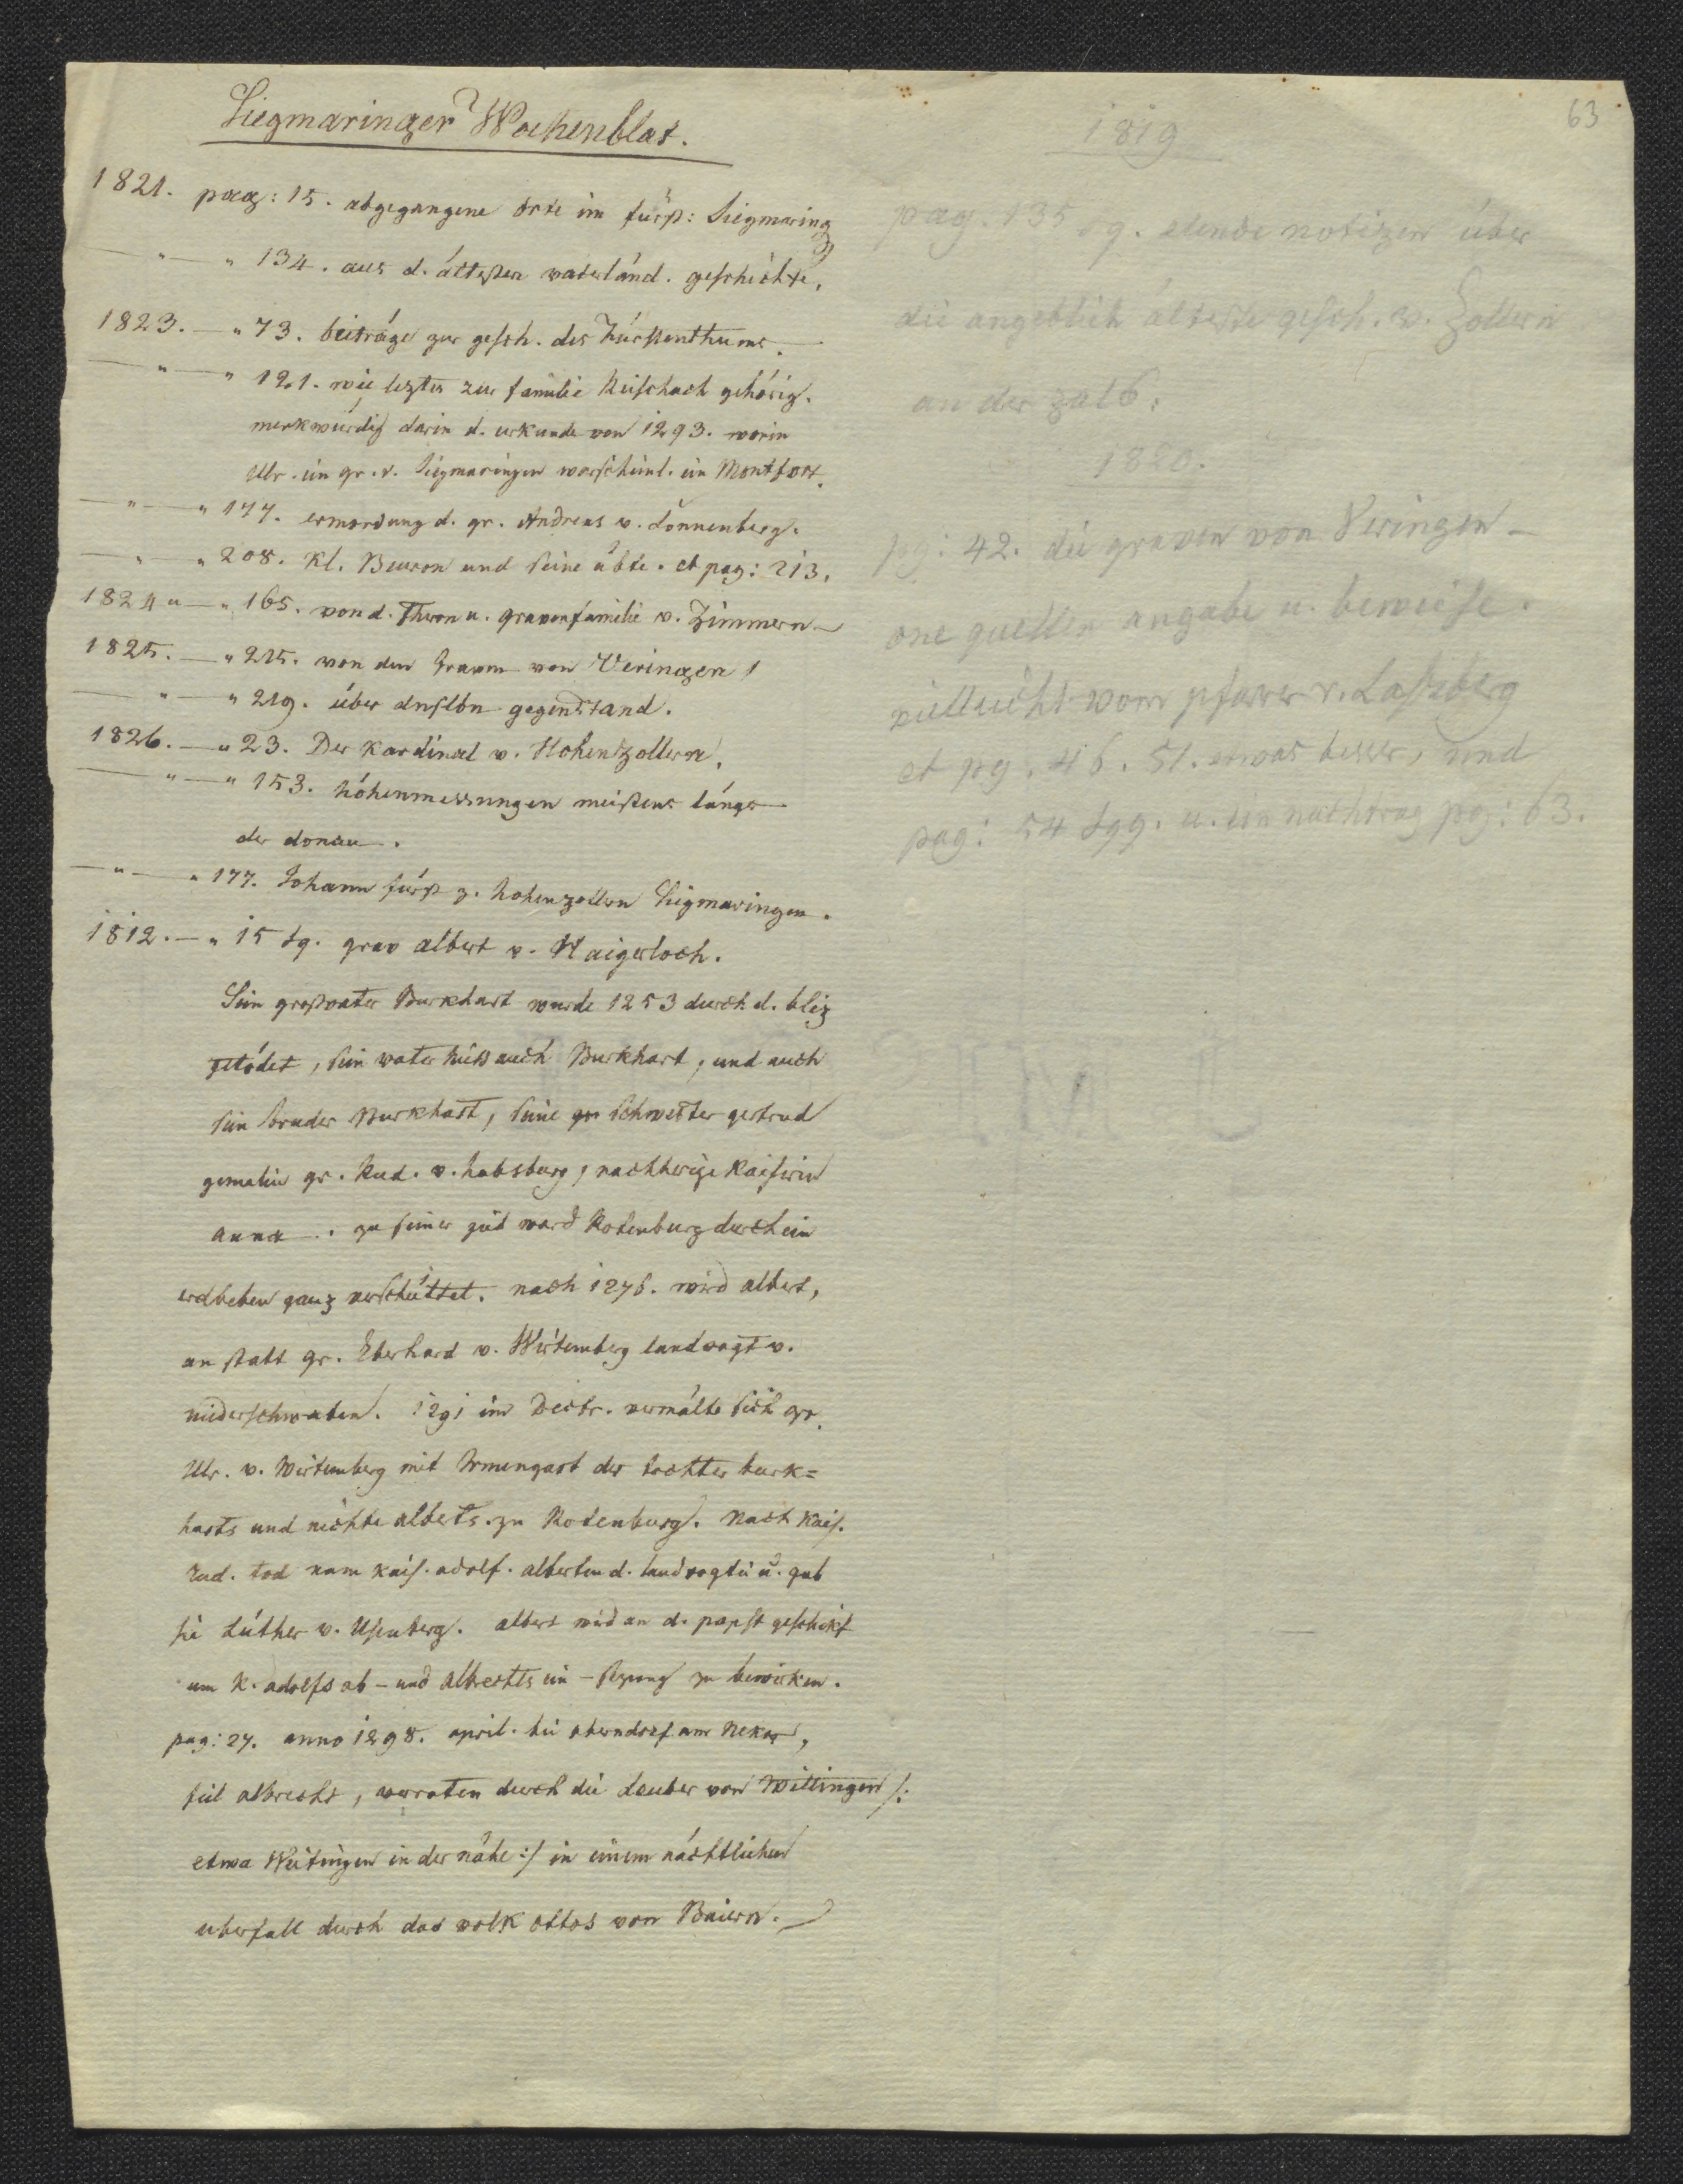 Siegmaringer Wochenblat.
1821. pag: 15. abgegangene orte im fürst: Siegmaring
" — " 134. aus d. ältesten vaterländ. geschichte.
1823. — " 73. beiträge zur gesch. des Fürstenthums.
" — " 121. wie leztes zur familie Reischach gehörig.
merkwürdig darin d. urkunde von 1293. worin
Ulr. ein gr. v. Siegmaringen warscheinl. ein Montfort.
" — " 177. ermordung d. gr. Andreas v. Sonnenberg.
" — " 208. Kl. Beuron und seine äbte. et pag: 213.
1824 " — " 165. von d. Thron u. gravenfamilie v. Zimmern —
1825. — " 215. von den Graven von Veringen /
" — " 219. über dnslbn gegenstand.
1826. — " 23. Der Kardinal v. Hohenzollern.
" — " 153. höhenmessungen meistens längs
der donau.
" — " 177. Johann fürst z. hohenzollern Siegmaringen.
1812. — " 15 sq. grav albert v. Haigerloch.
Sein grosvater Burkhart wurde 1253 durch d. bliz
getödet, sein vater hiess auch Burkhart, und auch
sein bruder Burkhart, seine gr schwester gertrud
gemalin gr. Rud. v. habsburg, nachherige Kaiserin
anna. zu seiner zeit ward Rotenburg durch ein
erdbeben ganz verschüttet. nach 1276. wird albert,
an statt gr. Eberhard v. Wirtemberg landvogt v.
niederschwaben. 1291 im Decbr. vermälte sich gr.
Ulr. v. Wirtemberg mit Irmengart der tochter burk=
harts und nichte alberts zu Rotenburg. Nach Kais.
Rud. tod nam kais. adolf. alberten d. landvogtei u. gab
sie Lüther v. Usenberg. albert wird an d. papst geschikt
um K. adolfs ab – und albrechts ein – sezung zu bewirken.
pag: 27. anno 1298. april. bei oberndorf am Neker,
fiel albrecht, verraten durch die Leuber von Wittingen /:
etwa Weitingen in der nähe :/ in einem nächtlichen
uberfall durch das volk ottos von Baiern.
63
1819
pag. 135 sq. elende notizen über
die angeblich älteste gesch. v. Zollern
an der zalb.
1820.
pg: 42. die graven von Veringen —
one quellen angabe u. beweise.
villeicht vom pfarrer v. Laszberg
et pg. 46. 51. etwas besser, und
pag: 54 sqq. u. ein nachtrag pag: 63.